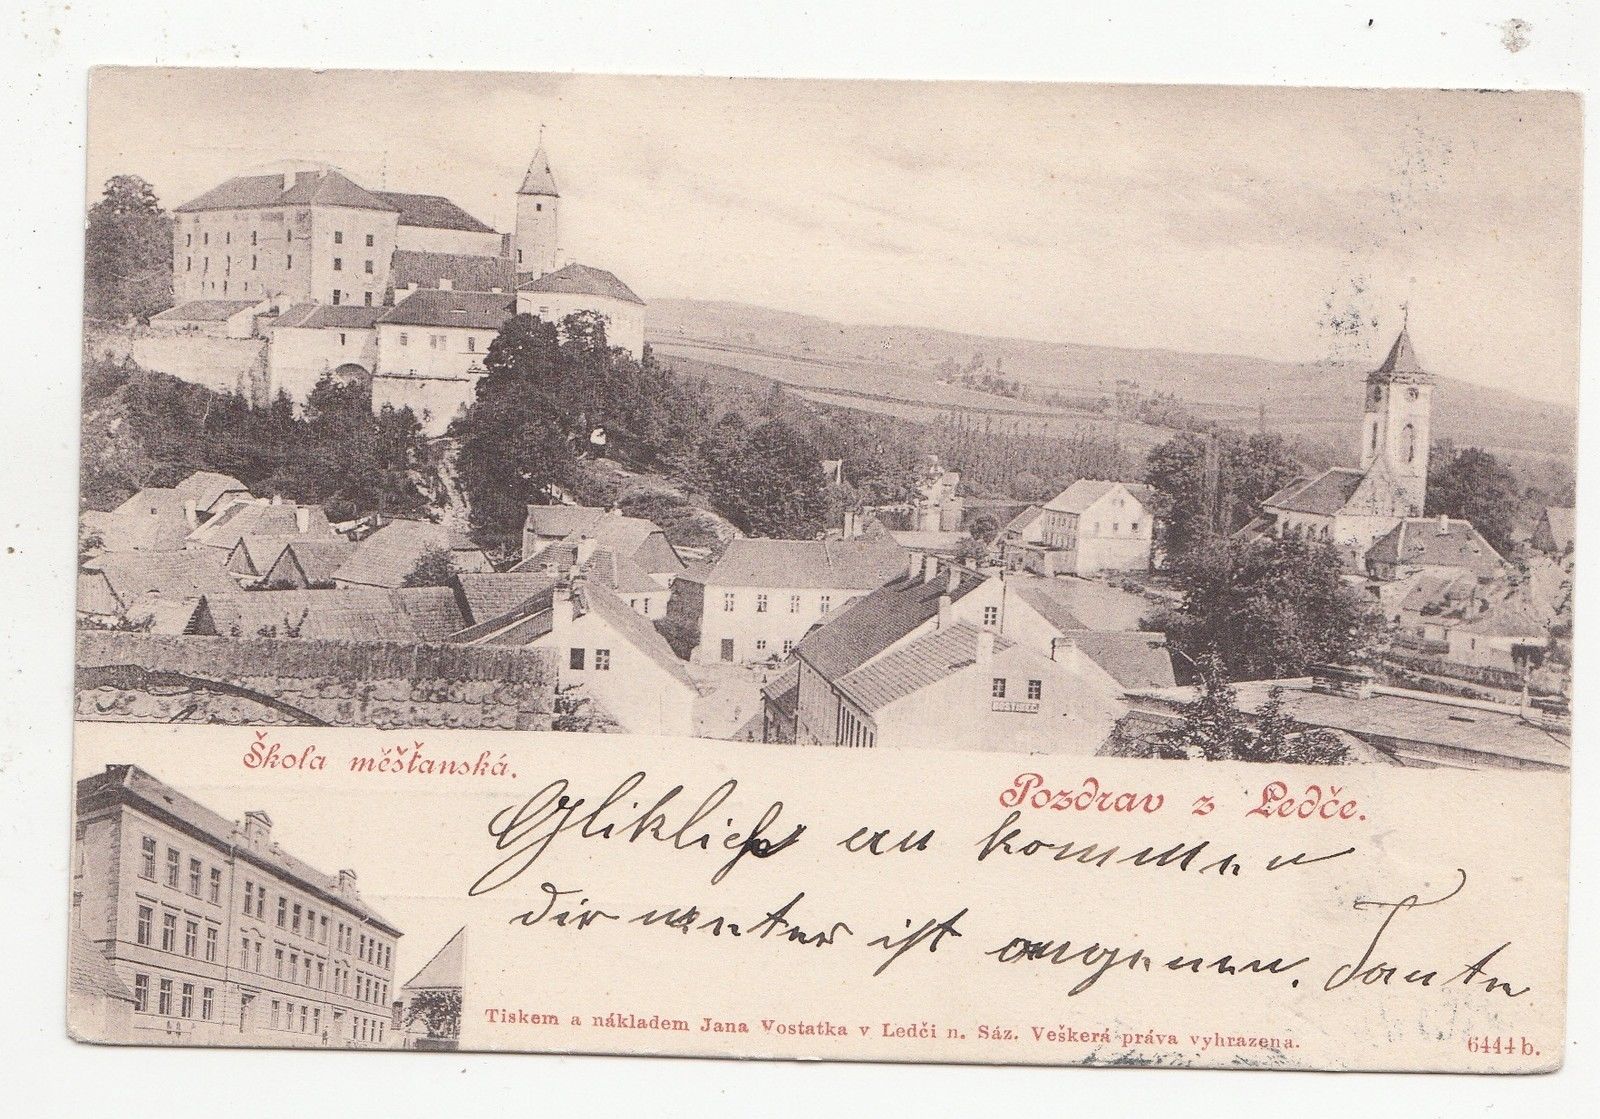 Škola měšťanská.
Pozdrav z Ledče.
Gliklich an kommen
dir ist angenen. Tante
Tiskem a nákladem Jana Vostatka v Ledči n. Sáz. Veškerá práva vyhrazena.
6444b.